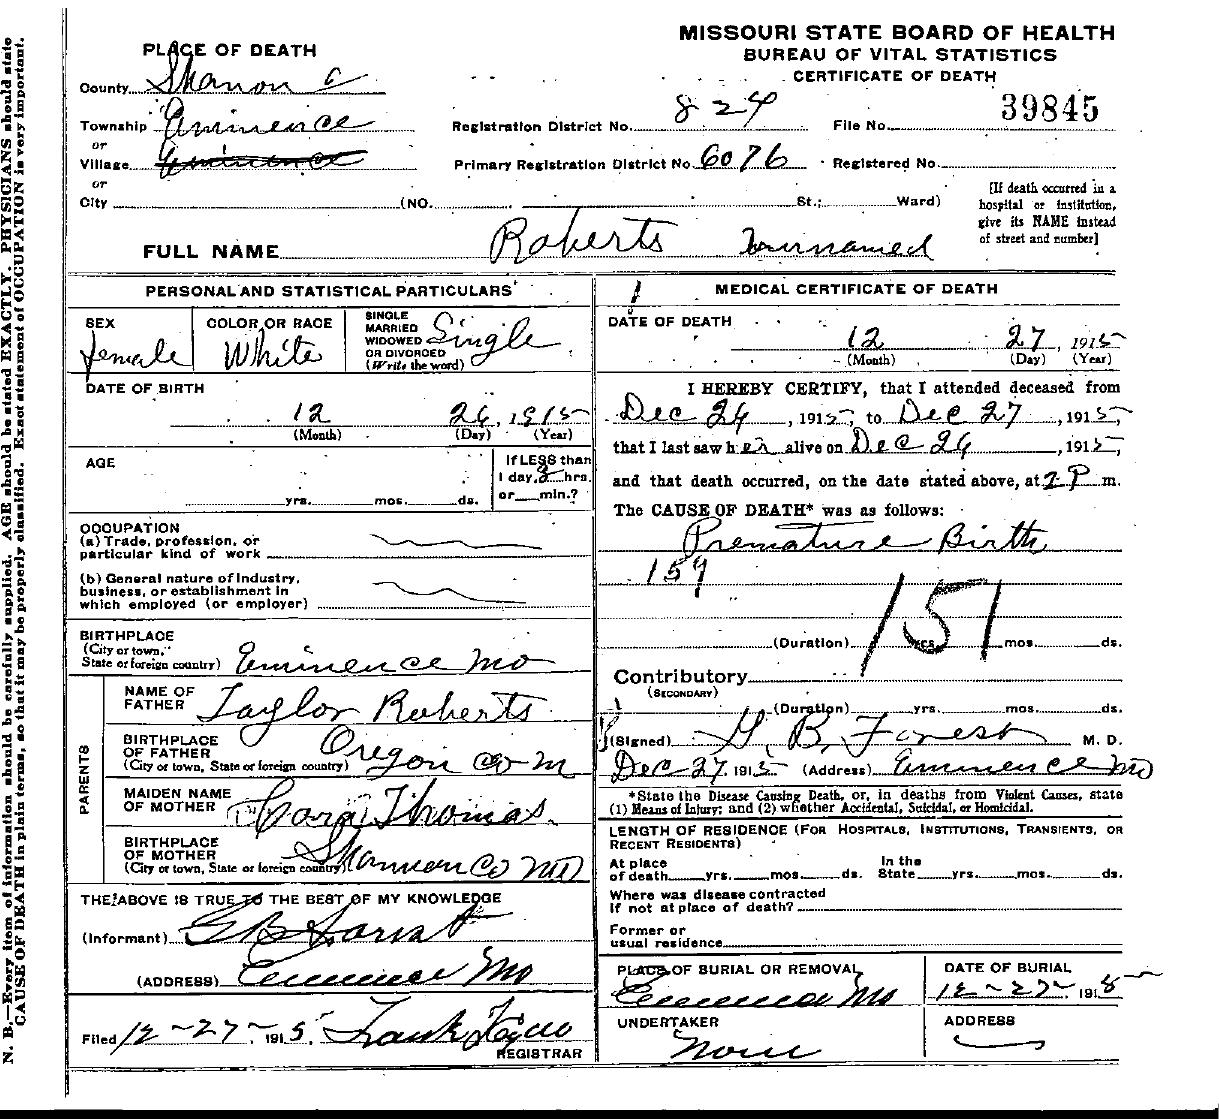 MISSOURI STATE BOARD OF HEALTH
BUREAU OF VITAL STATISTICS
CERTIFICATE OF DEATH
PLACE OF DEATH
County Shanon C
Township Eminence
or
Village Eminence
or
City (NO. St.; Ward)
Registration District No. 824 File No. 39845
Primary Registration District No. 6076 Registered No.
[If death occurred in a
hospital or institution,
give its NAME instead
of street and number]
FULL NAME Roberts
PERSONAL AND STATISTICAL PARTICULARS
SEX
female
COLOR OR RACE
White
SINGLE
MARRIED
WIDOWED
OR DIVORCED
(Write the word)
Single
DATE OF BIRTH
12 26, 1915
(Month) (Day) (Year)
AGE
yrs. mos. ds.
If LESS than
1 day, hrs.
or min.?
OCCUPATION
(a) Trade, profession, or
particular kind of work
(b) General nature of Industry,
business, or establishment in
which employed (or employer)
BIRTHPLACE
(City or town,
State or foreign country) Eminence Mo
PARENTS
NAME OF
FATHER Taylor Roberts
BIRTHPLACE
OF FATHER
(City or town, State or foreign country) Oregon Co M
MAIDEN NAME
OF MOTHER Cora Thomas
BIRTHPLACE
OF MOTHER
(City or town, State or foreign country) Shannon Co Mo
THE ABOVE IS TRUE TO THE BEST OF MY KNOWLEDGE
(Informant)
(ADDRESS) Eminence Mo
Filed 12-27-1915 Frank
REGISTRAR
MEDICAL CERTIFICATE OF DEATH
DATE OF DEATH
12 27, 1915
(Month) (Day) (Year)
I HEREBY CERTIFY, that I attended deceased from
Dec 26, 1915, to Dec 27, 1915,
that I last saw her alive on Dec 26, 1915,
and that death occurred, on the date stated above, at 2 P m.
The CAUSE OF DEATH* was as follows:
Premature Birth
159
151
(Duration) yrs. mos. ds.
Contributory
(SECONDARY)
(Duration) yrs. mos. ds.
(Signed) G. B. Forest M. D.
Dec 27, 1915 (Address) Eminence Mo
*State the Disease Causing Death, or, in deaths from Violent Causes, state
(1) Means of Injury; and (2) whether Accidental, Suicidal, or Homicidal.
LENGTH OF RESIDENCE (FOR HOSPITALS, INSTITUTIONS, TRANSIENTS, OR
RECENT RESIDENTS)
At place
of death yrs. mos. ds.
In the
State yrs. mos. ds.
Where was disease contracted
if not at place of death?
Former or
usual residence
PLACE OF BURIAL OR REMOVAL
Eminence Mo
DATE OF BURIAL
12-27-1915
UNDERTAKER
None
ADDRESS
N. B.—Every item of information should be carefully supplied. AGE should be stated EXACTLY. PHYSICIANS should state
CAUSE OF DEATH in plain terms, so that it may be properly classified. Exact statement of OCCUPATION is very important.